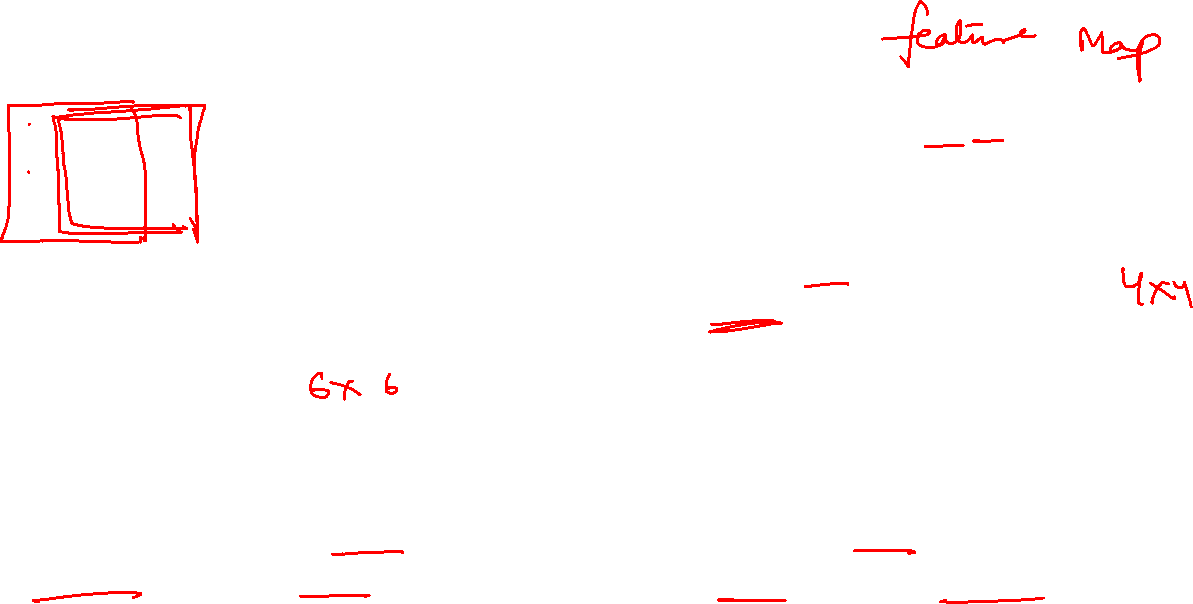 feature Map
4x4
6x 6